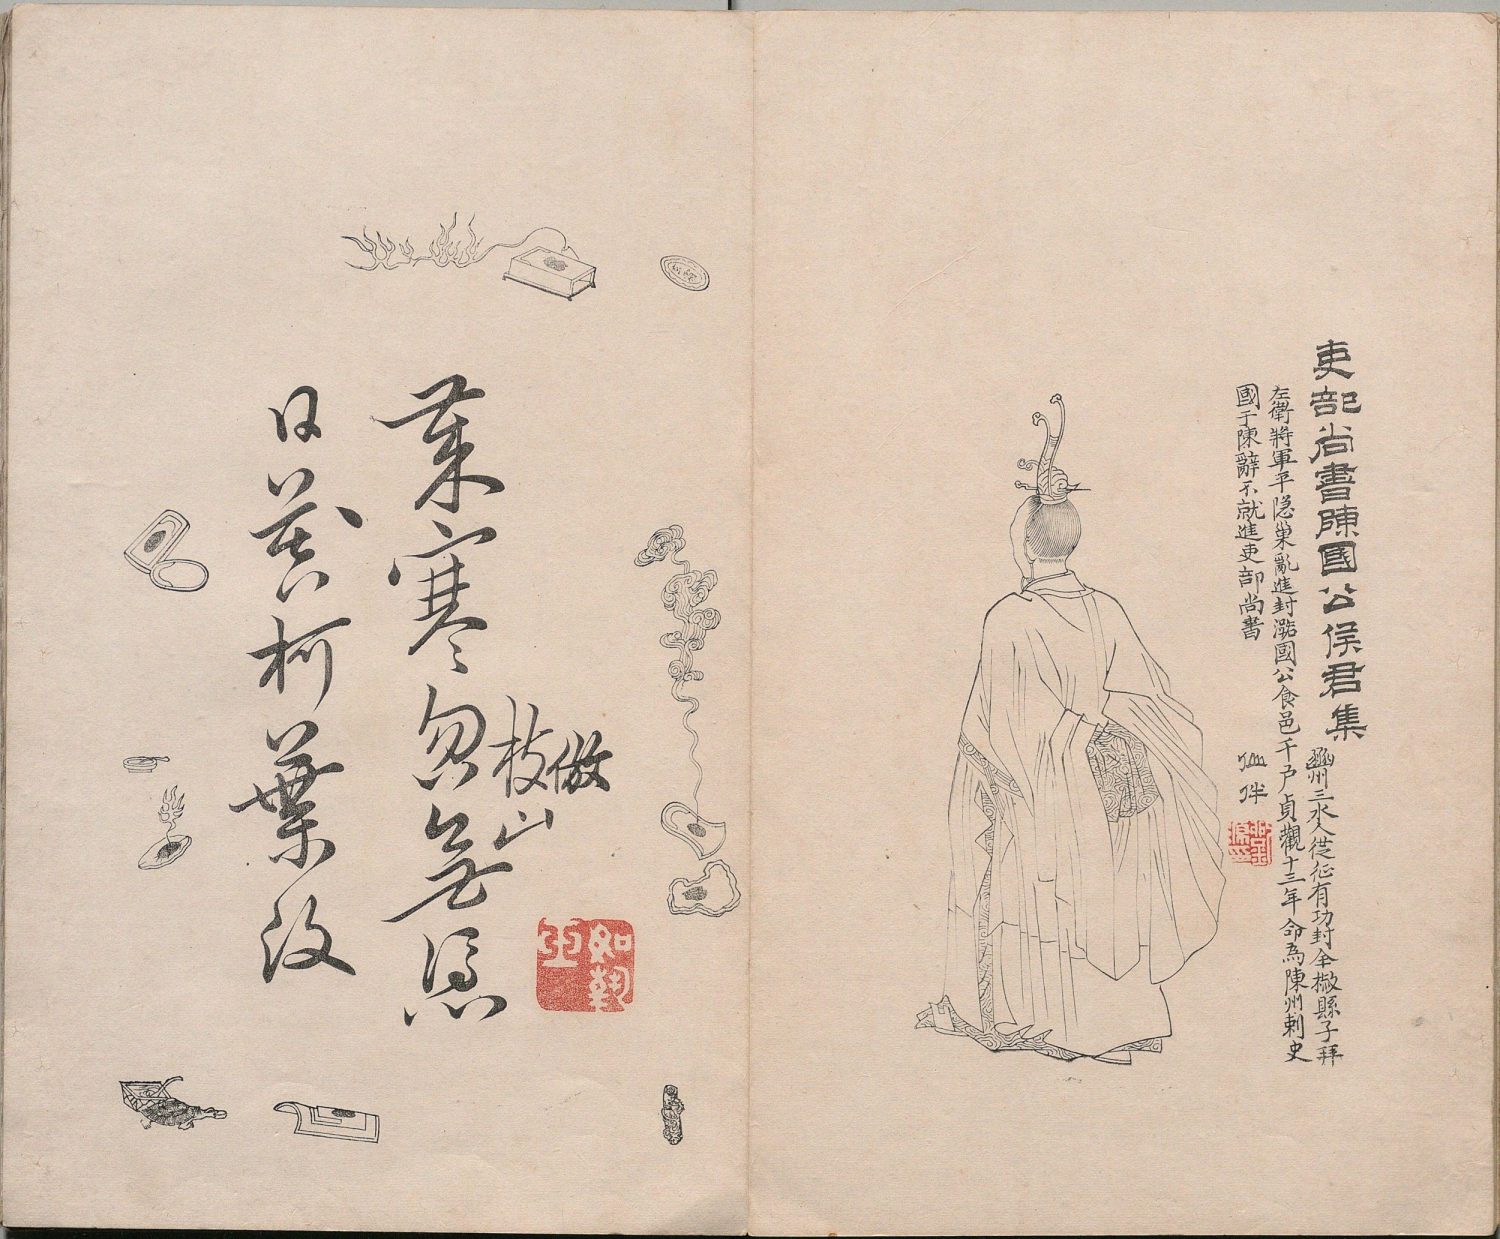 吏部尚書陳國公侯君集
豳州三水人從征有功封全椒縣子拜
左衛將軍平隐巢亂進封潞國公食邑千戶貞觀十三年命為陳州刺史
國于陳辭不就進吏部尚書
仙伴
倣
枝山
如執玉
歲寒忽無憑
日柯葉改